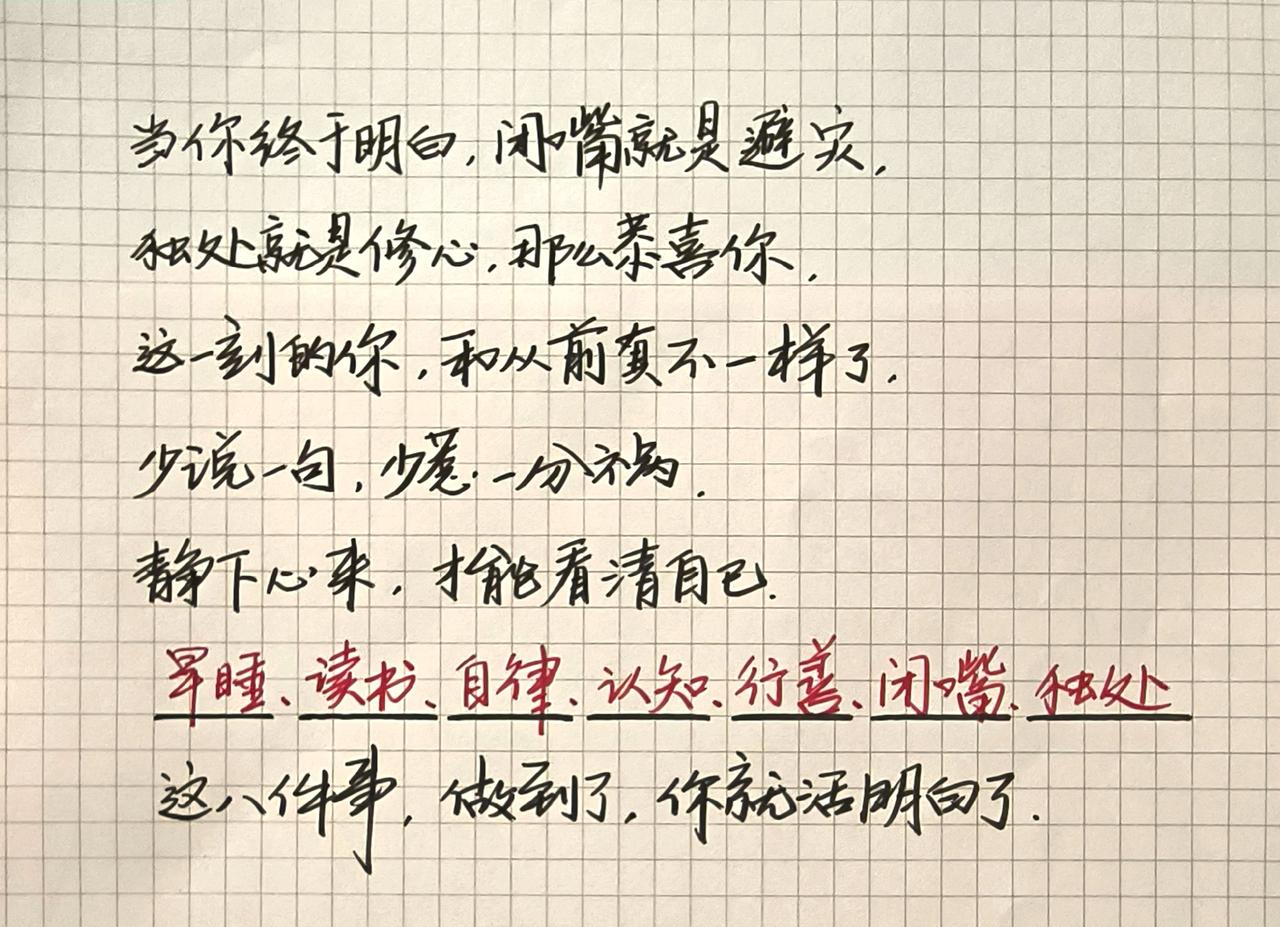 当你终于明白,闭嘴就是避灾,
独处就是修心,那么恭喜你,
这一刻的你,和从前真不一样了.
少说一句,少惹一分祸.
静下心来,才能看清自己.
早睡、读书、自律、认知、行善、闭嘴、独处
这八件事,做到了,你就活明白了.